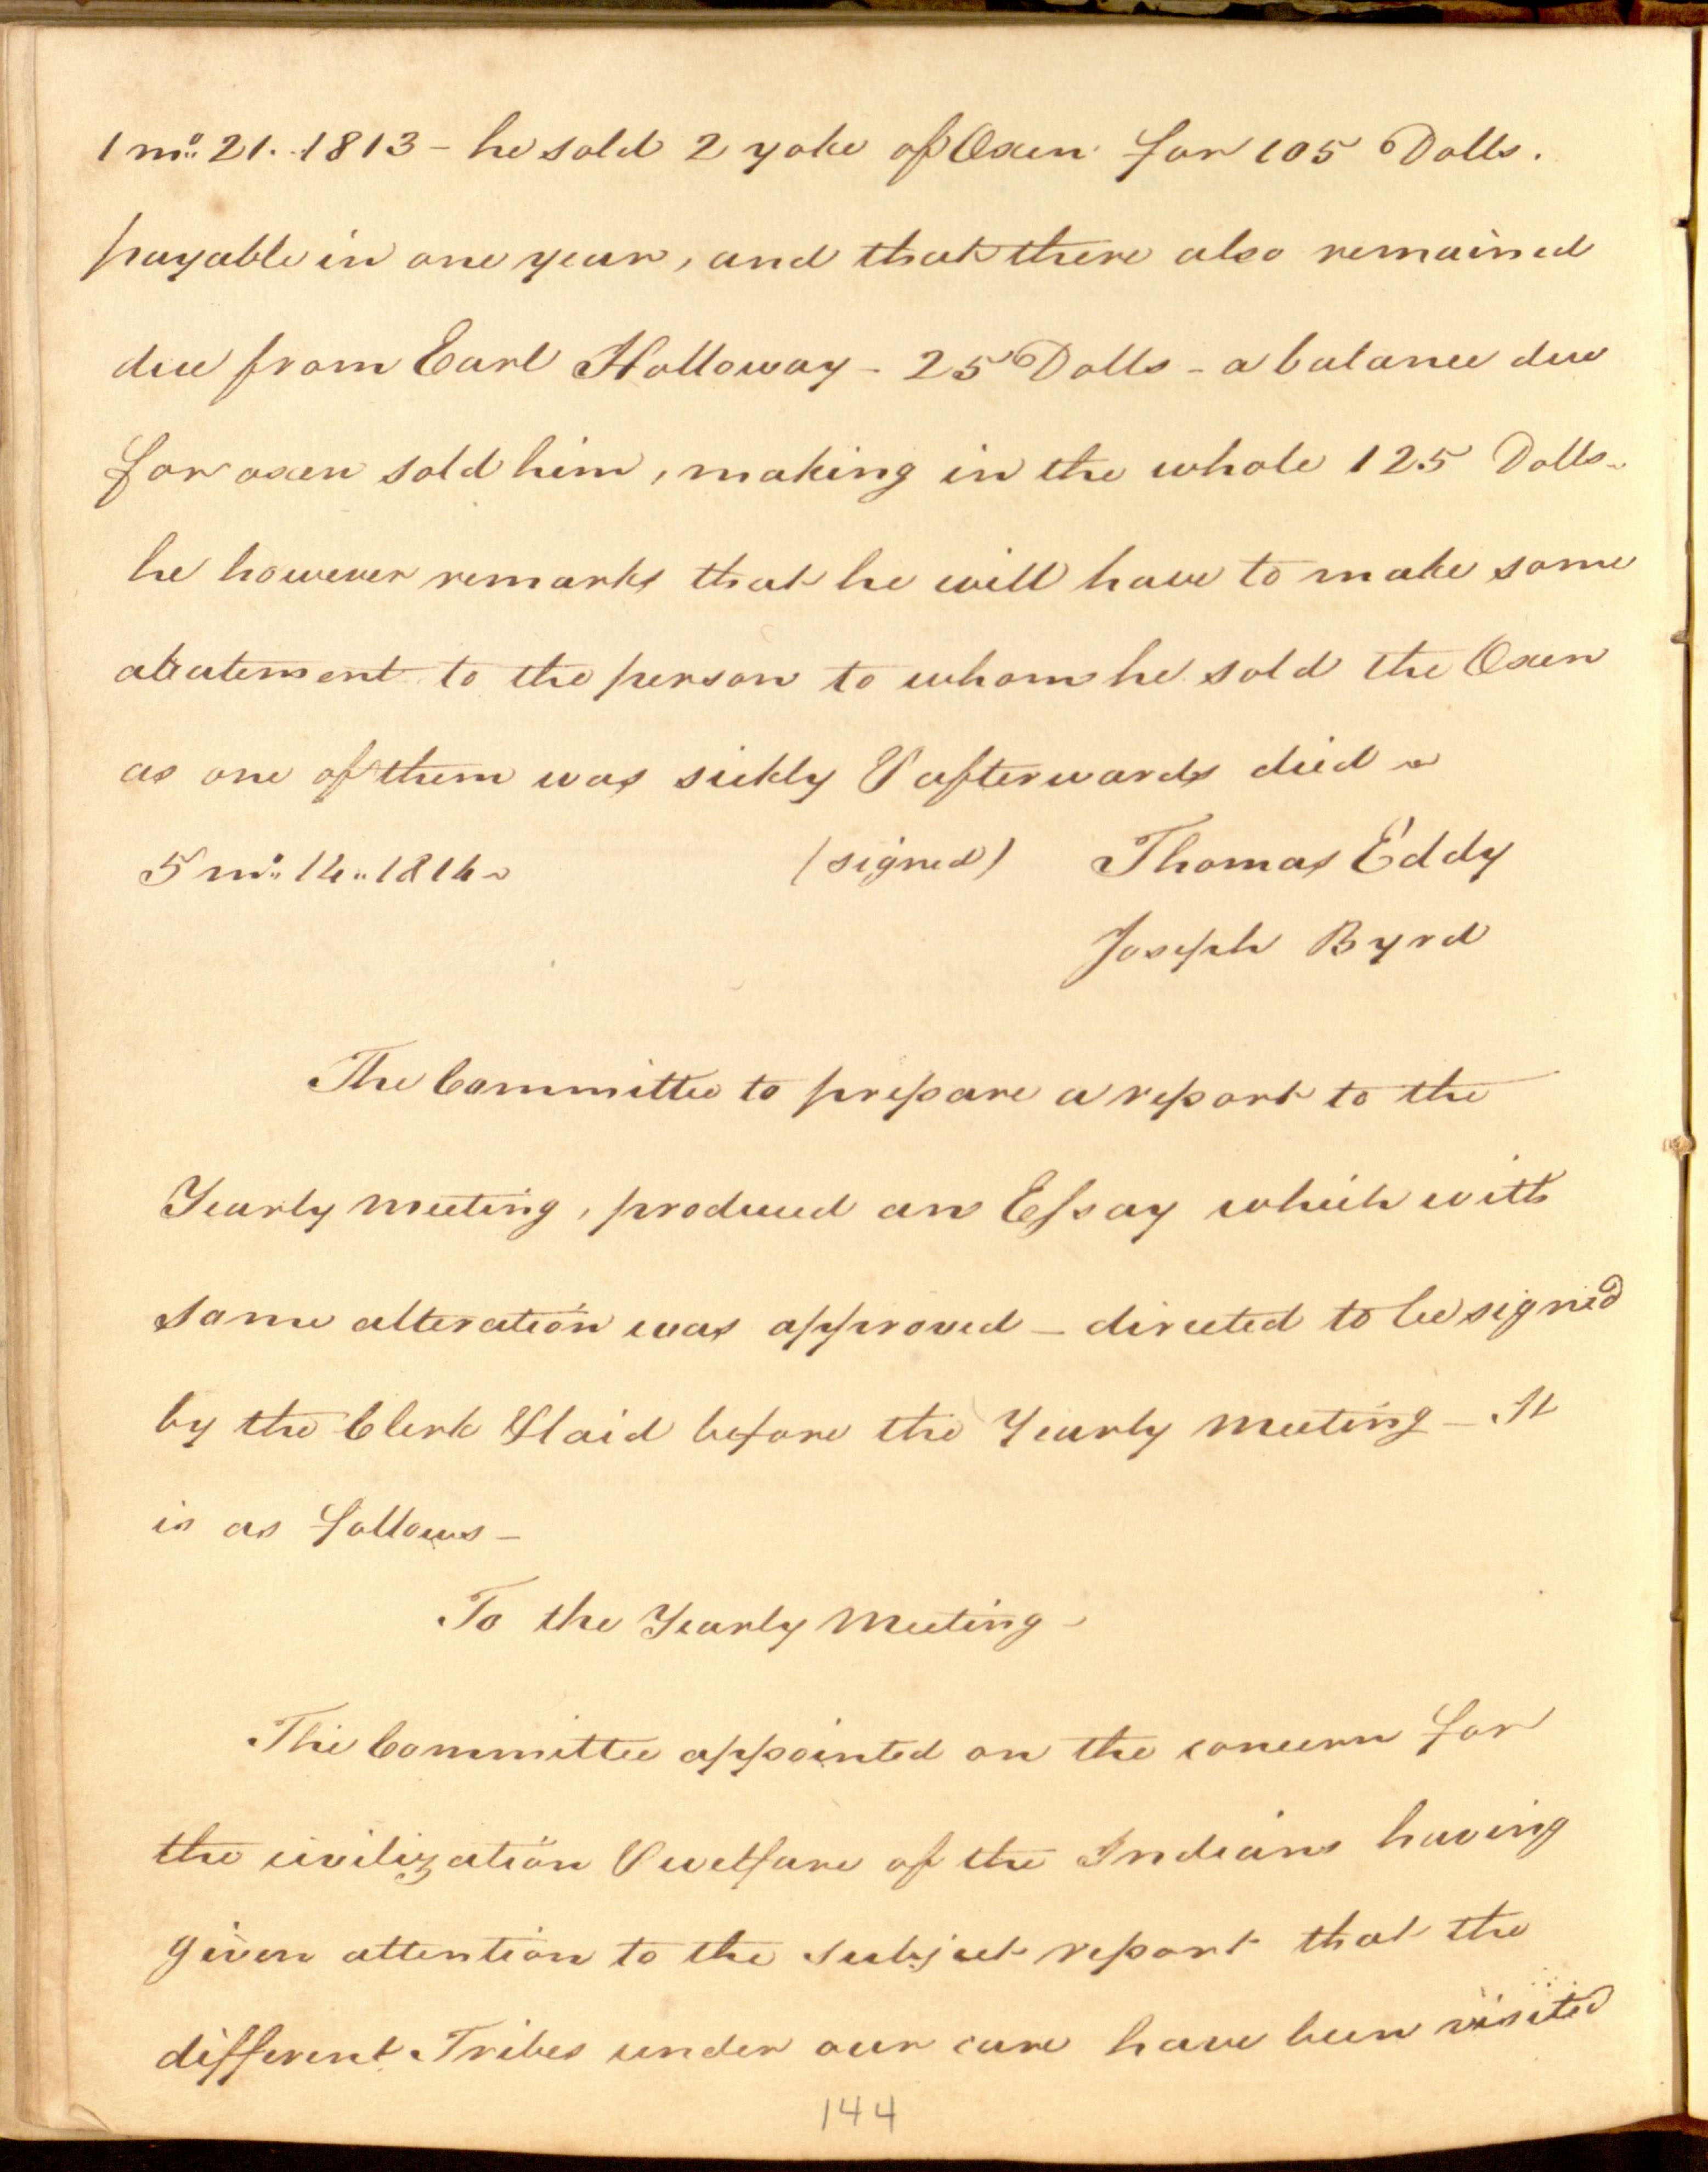 1 mo. 21. 1813 - he sold 2 yoke of Oxen for 105 Dolls.
payable in one year, and that there also remained
due from Earl Holloway - 25 Dolls - a balance due
for oxen sold him, making in the whole 125 Dolls -
he however remarks that he will have to make some
abatement to the person to whom he sold the Oxen
as one of them was sickly & afterwards died -
5 mo. 14.. 1814 - (signed) Thomas Eddy
Joseph Byrd
The Committee to prepare a report to the
Yearly meeting, produced an Essay which with
some alteration was approved - directed to be signed
by the Clerk & laid before the Yearly Meeting - It
is as follows -
To the Yearly Meeting -
The Committee appointed on the concern for
the civilization & welfare of the Indians having
given attention to the subject report that the
different Tribes under our care have been visited
144